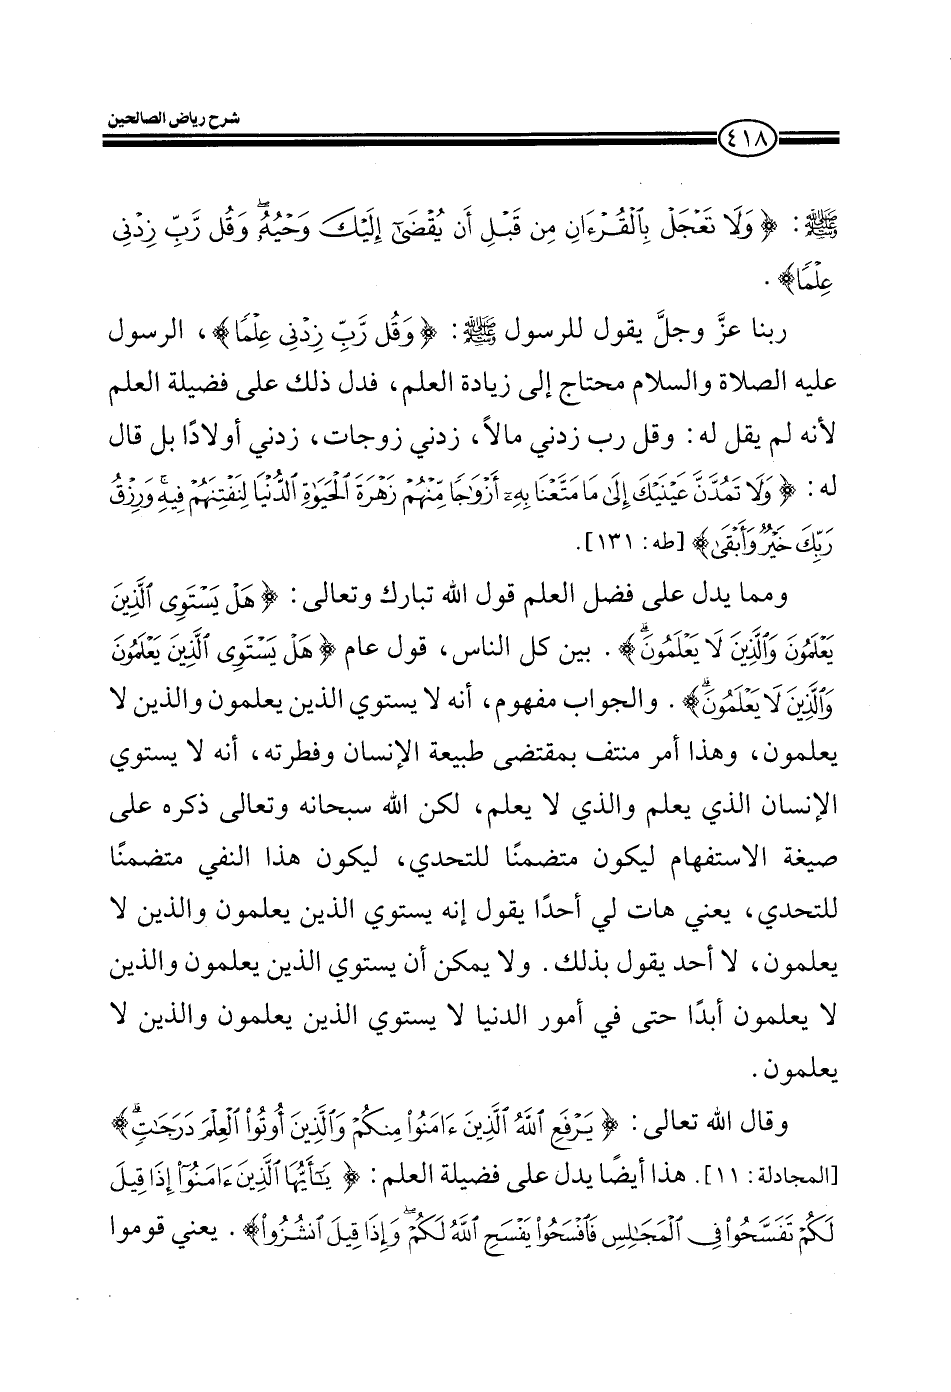 شرح رياض الصالحين
٤١٨
ﷺ: ﴿ وَلَا تَعْجَلْ بِالْقُرْءَانِ مِن قَبْلِ أَن يُقْضَىٰٓ إِلَيْكَ وَحْيُهُۥ ۖ وَقُل رَّبِّ زِدْنِى
عِلْمًا﴾ .
ربنا عزَّ وجلَّ يقول للرسول ﷺ: ﴿وَقُل رَّبِّ زِدْنِى عِلْمًا﴾، الرسول
عليه الصلاة والسلام محتاج إلى زيادة العلم، فدل ذلك على فضيلة العلم
لأنه لم يقل له: وقل رب زدني مالاً، زدني زوجات، زدني أولادًا بل قال
له: ﴿ وَلَا تَمُدَّنَّ عَيْنَيْكَ إِلَىٰ مَا مَتَّعْنَا بِهِۦٓ أَزْوَٰجًا مِّنْهُمْ زَهْرَةَ ٱلْحَيَوٰةِ ٱلدُّنْيَا لِنَفْتِنَهُمْ فِيهِ ۚ وَرِزْقُ
رَبِّكَ خَيْرٌ وَأَبْقَىٰ﴾ [طه: ١٣١].
ومما يدل على فضل العلم قول الله تبارك وتعالى: ﴿ هَلْ يَسْتَوِى ٱلَّذِينَ
يَعْلَمُونَ وَٱلَّذِينَ لَا يَعْلَمُونَ ۗ﴾ . بين كل الناس، قول عام ﴿ هَلْ يَسْتَوِى ٱلَّذِينَ يَعْلَمُونَ
وَٱلَّذِينَ لَا يَعْلَمُونَ ۗ﴾ . والجواب مفهوم، أنه لا يستوي الذين يعلمون والذين لا
يعلمون، وهذا أمر منتف بمقتضى طبيعة الإنسان وفطرته، أنه لا يستوي
الإنسان الذي يعلم والذي لا يعلم، لكن الله سبحانه وتعالى ذكره على
صيغة الاستفهام ليكون متضمنًا للتحدي، ليكون هذا النفي متضمنًا
للتحدي، يعني هات لي أحدًا يقول إنه يستوي الذين يعلمون والذين لا
يعلمون، لا أحد يقول بذلك. ولا يمكن أن يستوي الذين يعلمون والذين
لا يعلمون أبدًا حتى في أمور الدنيا لا يستوي الذين يعلمون والذين لا
يعلمون.
وقال الله تعالى: ﴿ يَرْفَعِ ٱللَّهُ ٱلَّذِينَ ءَامَنُوا۟ مِنكُمْ وَٱلَّذِينَ أُوتُوا۟ ٱلْعِلْمَ دَرَجَٰتٍ ۗ﴾
[المجادلة: ١١]. هذا أيضًا يدل على فضيلة العلم: ﴿ يَٰٓأَيُّهَا ٱلَّذِينَ ءَامَنُوٓا۟ إِذَا قِيلَ
لَكُمْ تَفَسَّحُوا۟ فِى ٱلْمَجَٰلِسِ فَٱفْسَحُوا۟ يَفْسَحِ ٱللَّهُ لَكُمْ ۖ وَإِذَا قِيلَ ٱنشُزُوا۟﴾ . يعني قوموا